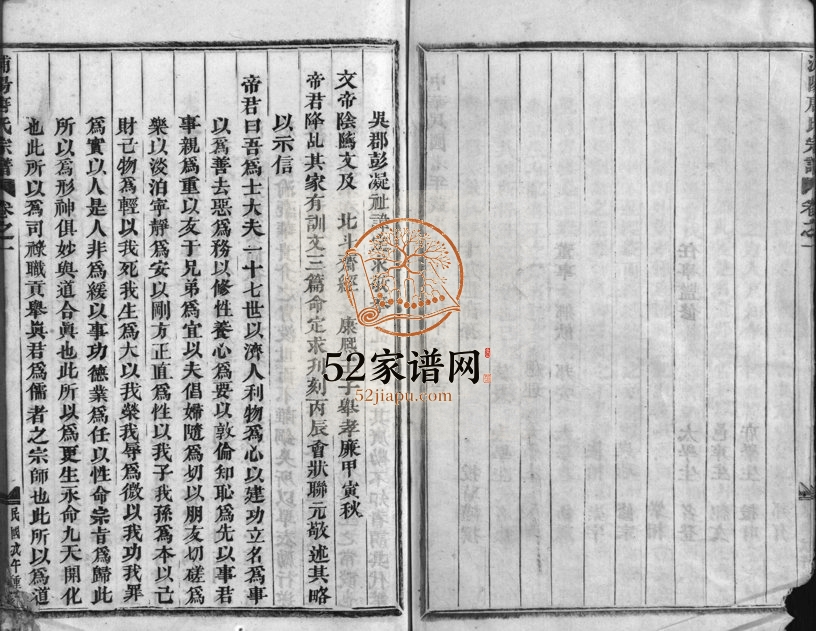 吳郡彭凝祉
文帝陰騭文及 北斗齋經 康熙 子舉孝廉甲寅秋
帝君降乩其家有訓文三篇命定求刋刻丙辰會狀聯元敬述其略
以示信
帝君曰吾爲士大夫一十七世以濟人利物爲心以建功立名爲事
以爲善去惡爲務以修性養心爲要以敦倫知恥爲先以事君
事親爲重以友于兄弟爲宜以夫倡婦隨爲切以朋友切磋爲
樂以淡泊寧靜爲安以剛方正直爲性以我子我孫爲本以己
財己物爲輕以我死我生爲大以我榮我辱爲微以我功我罪
爲實以人是人非爲緩以事功德業爲任以性命宗旨爲歸此
所以爲形神俱妙與道合眞也此所以爲更生永命九天開化
也此所以爲司祿職貢舉眞君爲儒者之宗師也此所以爲道
浦陽 氏宗譜 卷之一
民國戊午重
氏宗譜 卷之一
52家谱网
52jiapu.com